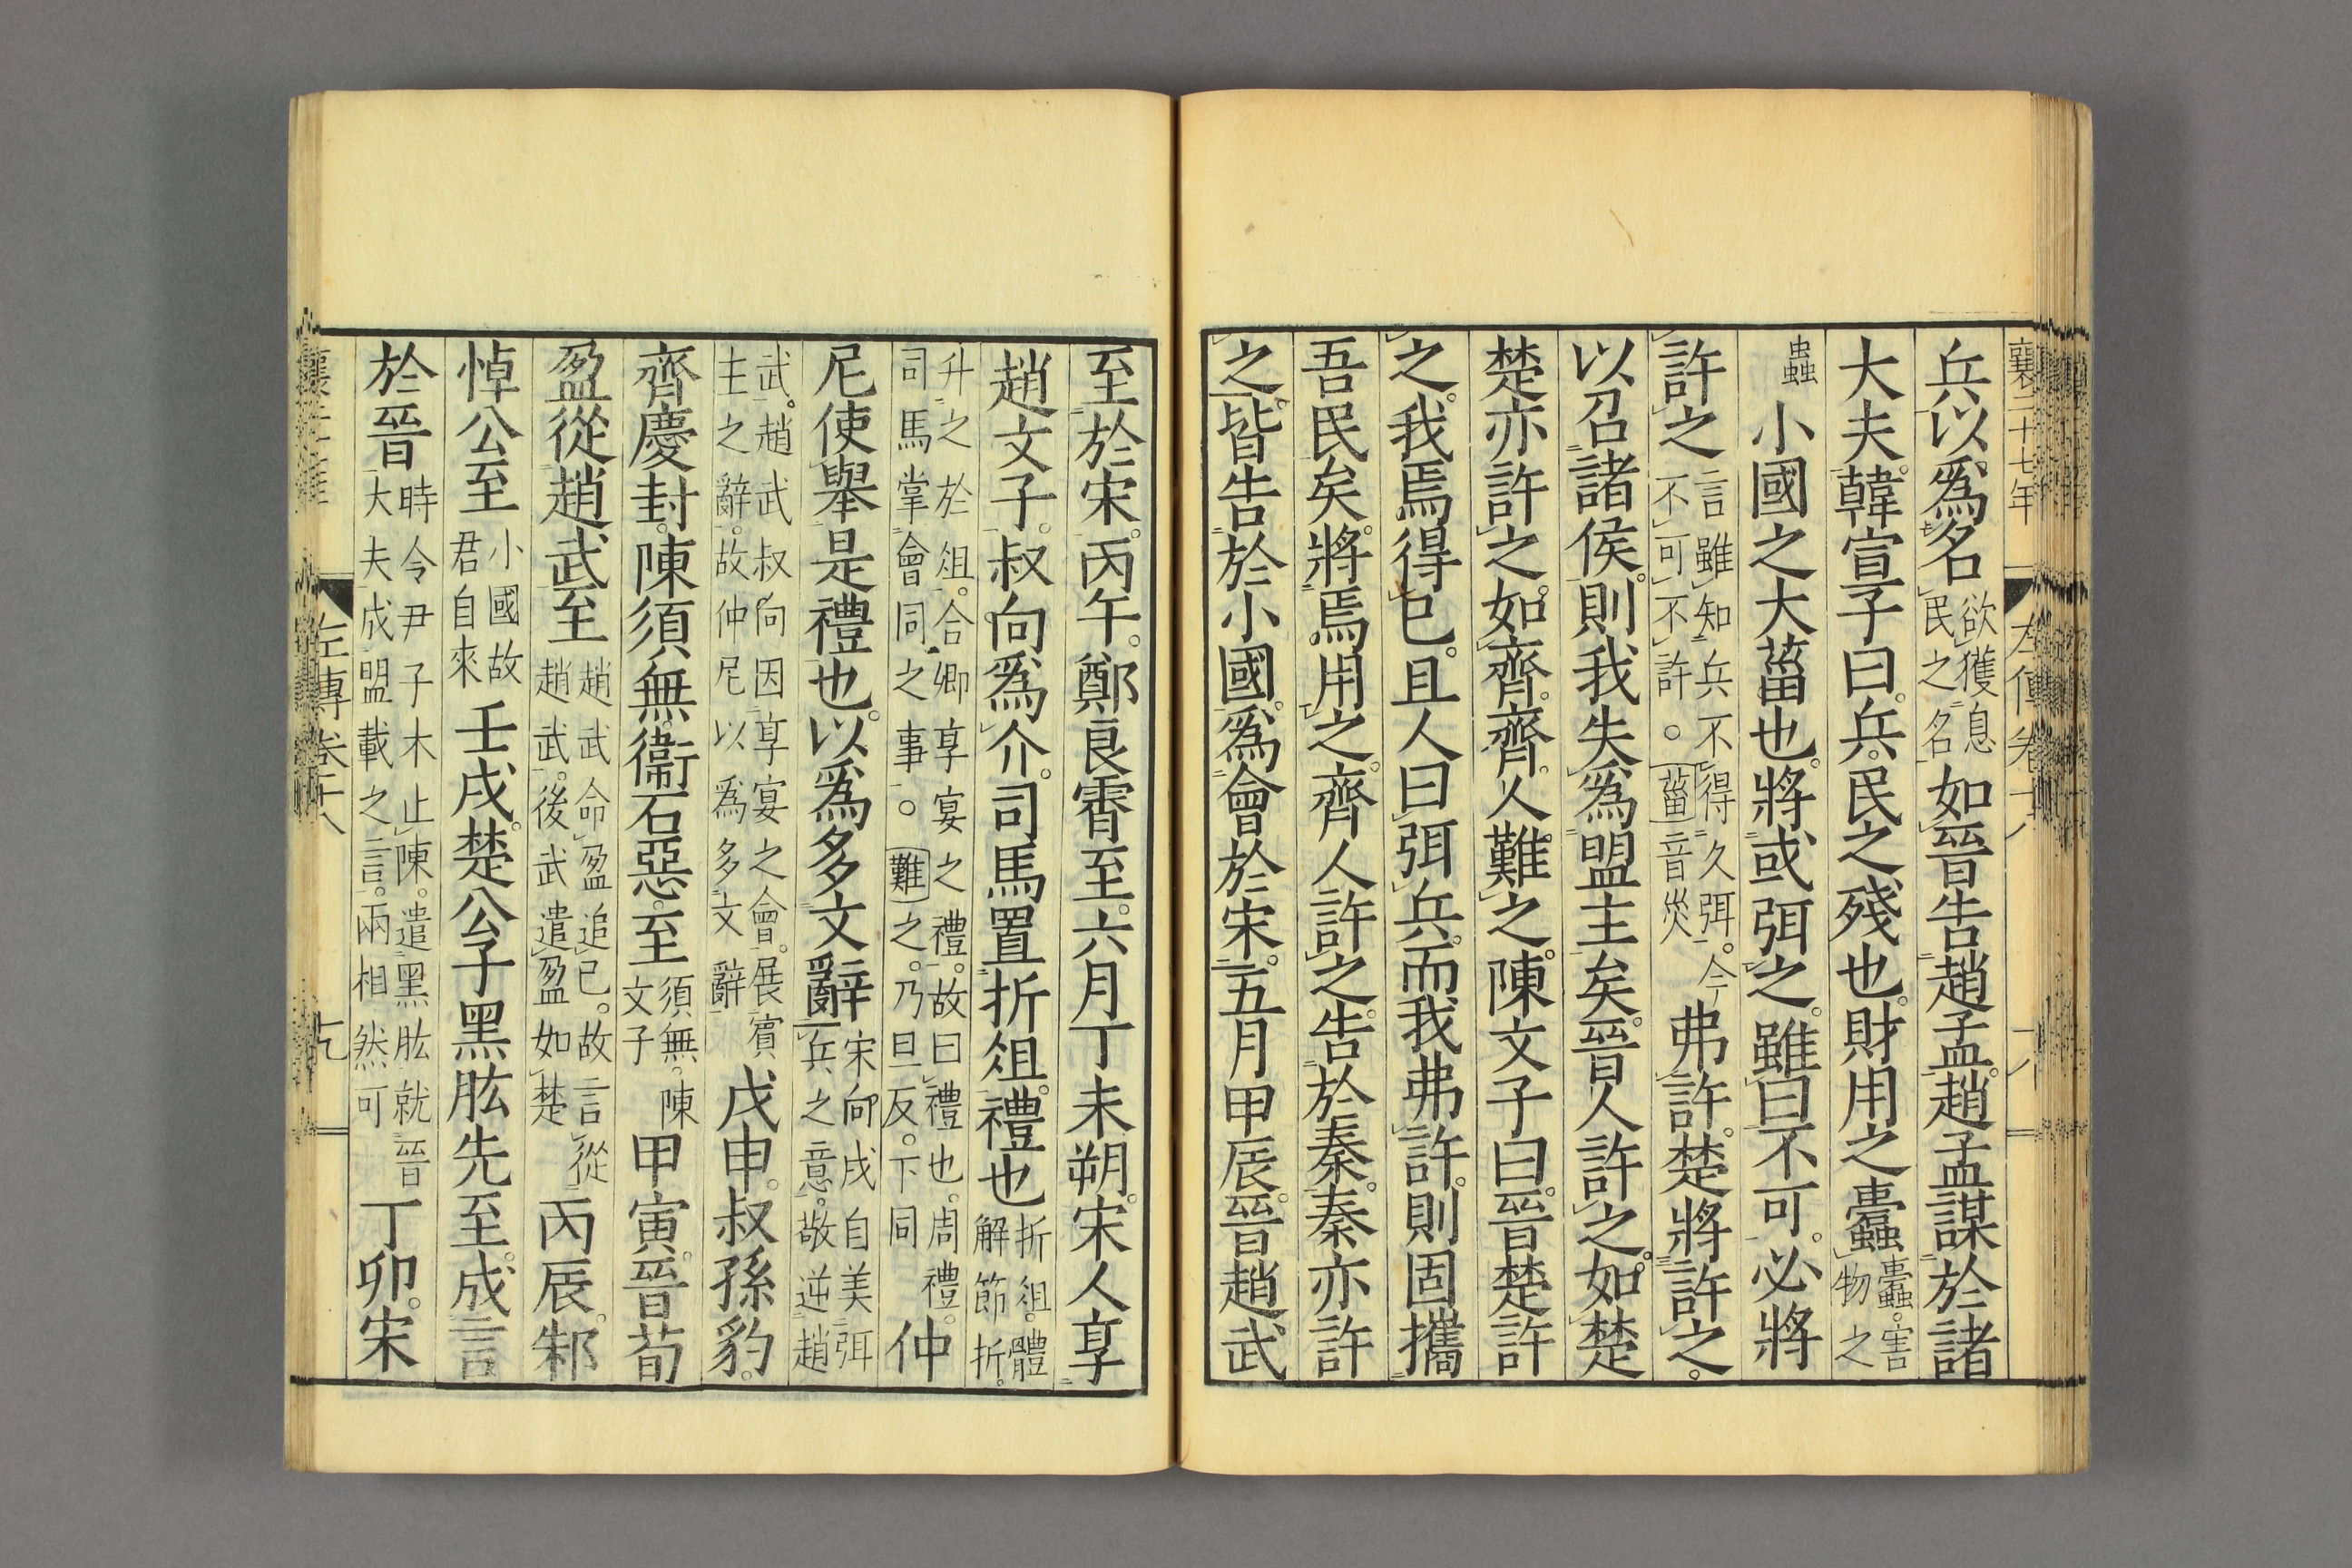 襄二十七年 左傳卷十八 十八
兵以爲名欲獲息民之名如晉告趙孟趙孟謀於諸
大夫韓宣子曰兵民之殘也財用之蠹蠹害物之
蟲小國之大菑也將或弭之雖曰不可必將
許之言雖知兵不得久弭今不可不許○菑音烖弗許楚將許之
以召諸侯則我失爲盟主矣晉人許之如楚
楚亦許之如齊齊人難之陳文子曰晉楚許
之我焉得已且人曰弭兵而我弗許則固攜
吾民矣將焉用之齊人許之告於秦秦亦許
之皆告於小國爲會於宋五月甲辰晉趙武
至於宋丙午鄭良霄至六月丁未朔宋人享
趙文子叔向爲介司馬置折俎禮也折俎體解節折
升之於俎合卿享宴之禮故曰禮也周禮司馬掌會同之事○難之乃旦反下同仲
尼使舉是禮也以爲多文辭宋向戌自美弭兵之意敬逆趙
武趙武叔向因享宴之會展賓主之辭故仲尼以爲多文辭戊申叔孫豹
齊慶封陳須無衞石惡至須無陳文子甲寅晉荀
盈從趙武至趙武命盈追已故言從趙武後武遣盈如楚丙辰邾
悼公至小國故君自來壬戌楚公子黑肱先至成言
於晉時令尹子木止陳遣黑肱就晉大夫成盟載之言兩相然可丁卯宋
左傳卷十八 十九